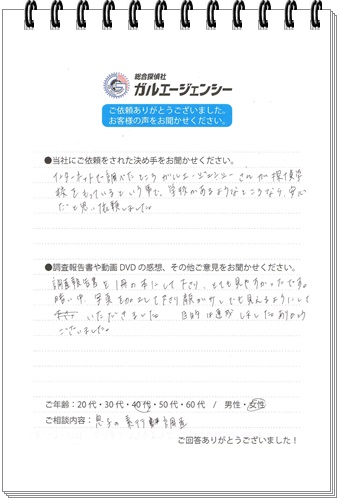 総合探偵社
ガルエージェンシー
ご依頼ありがとうございました。
お客様の声をお聞かせください。
●当社にご依頼をされた決め手をお聞かせください。
インターネットで調べたところガルエージェンシーさんが探偵学
校をもっているという事で、学校があるようなところなら、安心
だと思い依頼しました
●調査報告書や動画DVDの感想、その他ご意見をお聞かせください。
調査報告書を1冊の本にして下さり、とても見やすかったです。
暗い中、写真を加工して下さり顔が少しでも見えるようにして
いただきました 目的は達成しました ありがとう
ございました。
ご年齢：20代・30代・40代・50代・60代 / 男性・女性
ご相談内容：息子の素行調査
ご回答ありがとうございました！